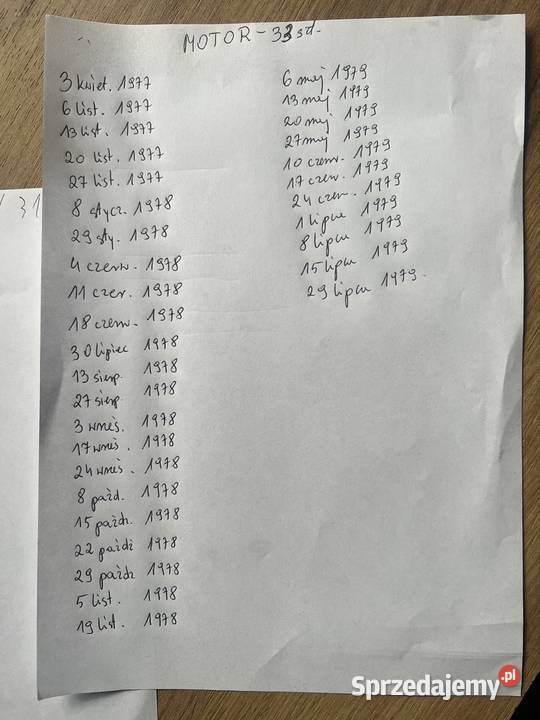 MOTOR - 33 szt.
3 kwiet. 1977
6 list. 1977
13 list. 1977
20 list. 1977
27 list. 1977
8 stycz. 1978
29 sty. 1978
4 czerw. 1978
11 czer. 1978
18 czerw. 1978
30 lipiec 1978
13 sierp 1978
27 sierp 1978
3 wrześ. 1978
17 wrześ. 1978
24 wrześ. 1978
8 paźd. 1978
15 paźdz. 1978
22 paźdź 1978
29 paźdz 1978
5 list. 1978
19 list. 1978
6 maj 1979
13 maj 1979
20 maj 1979
27 maj 1979
10 czerw. 1979
17 czerw. 1979
24 czerw. 1979
1 lipca 1979
8 lipca 1979
15 lipca 1979
29 lipca 1979.
31
Sprzedajemy.pl